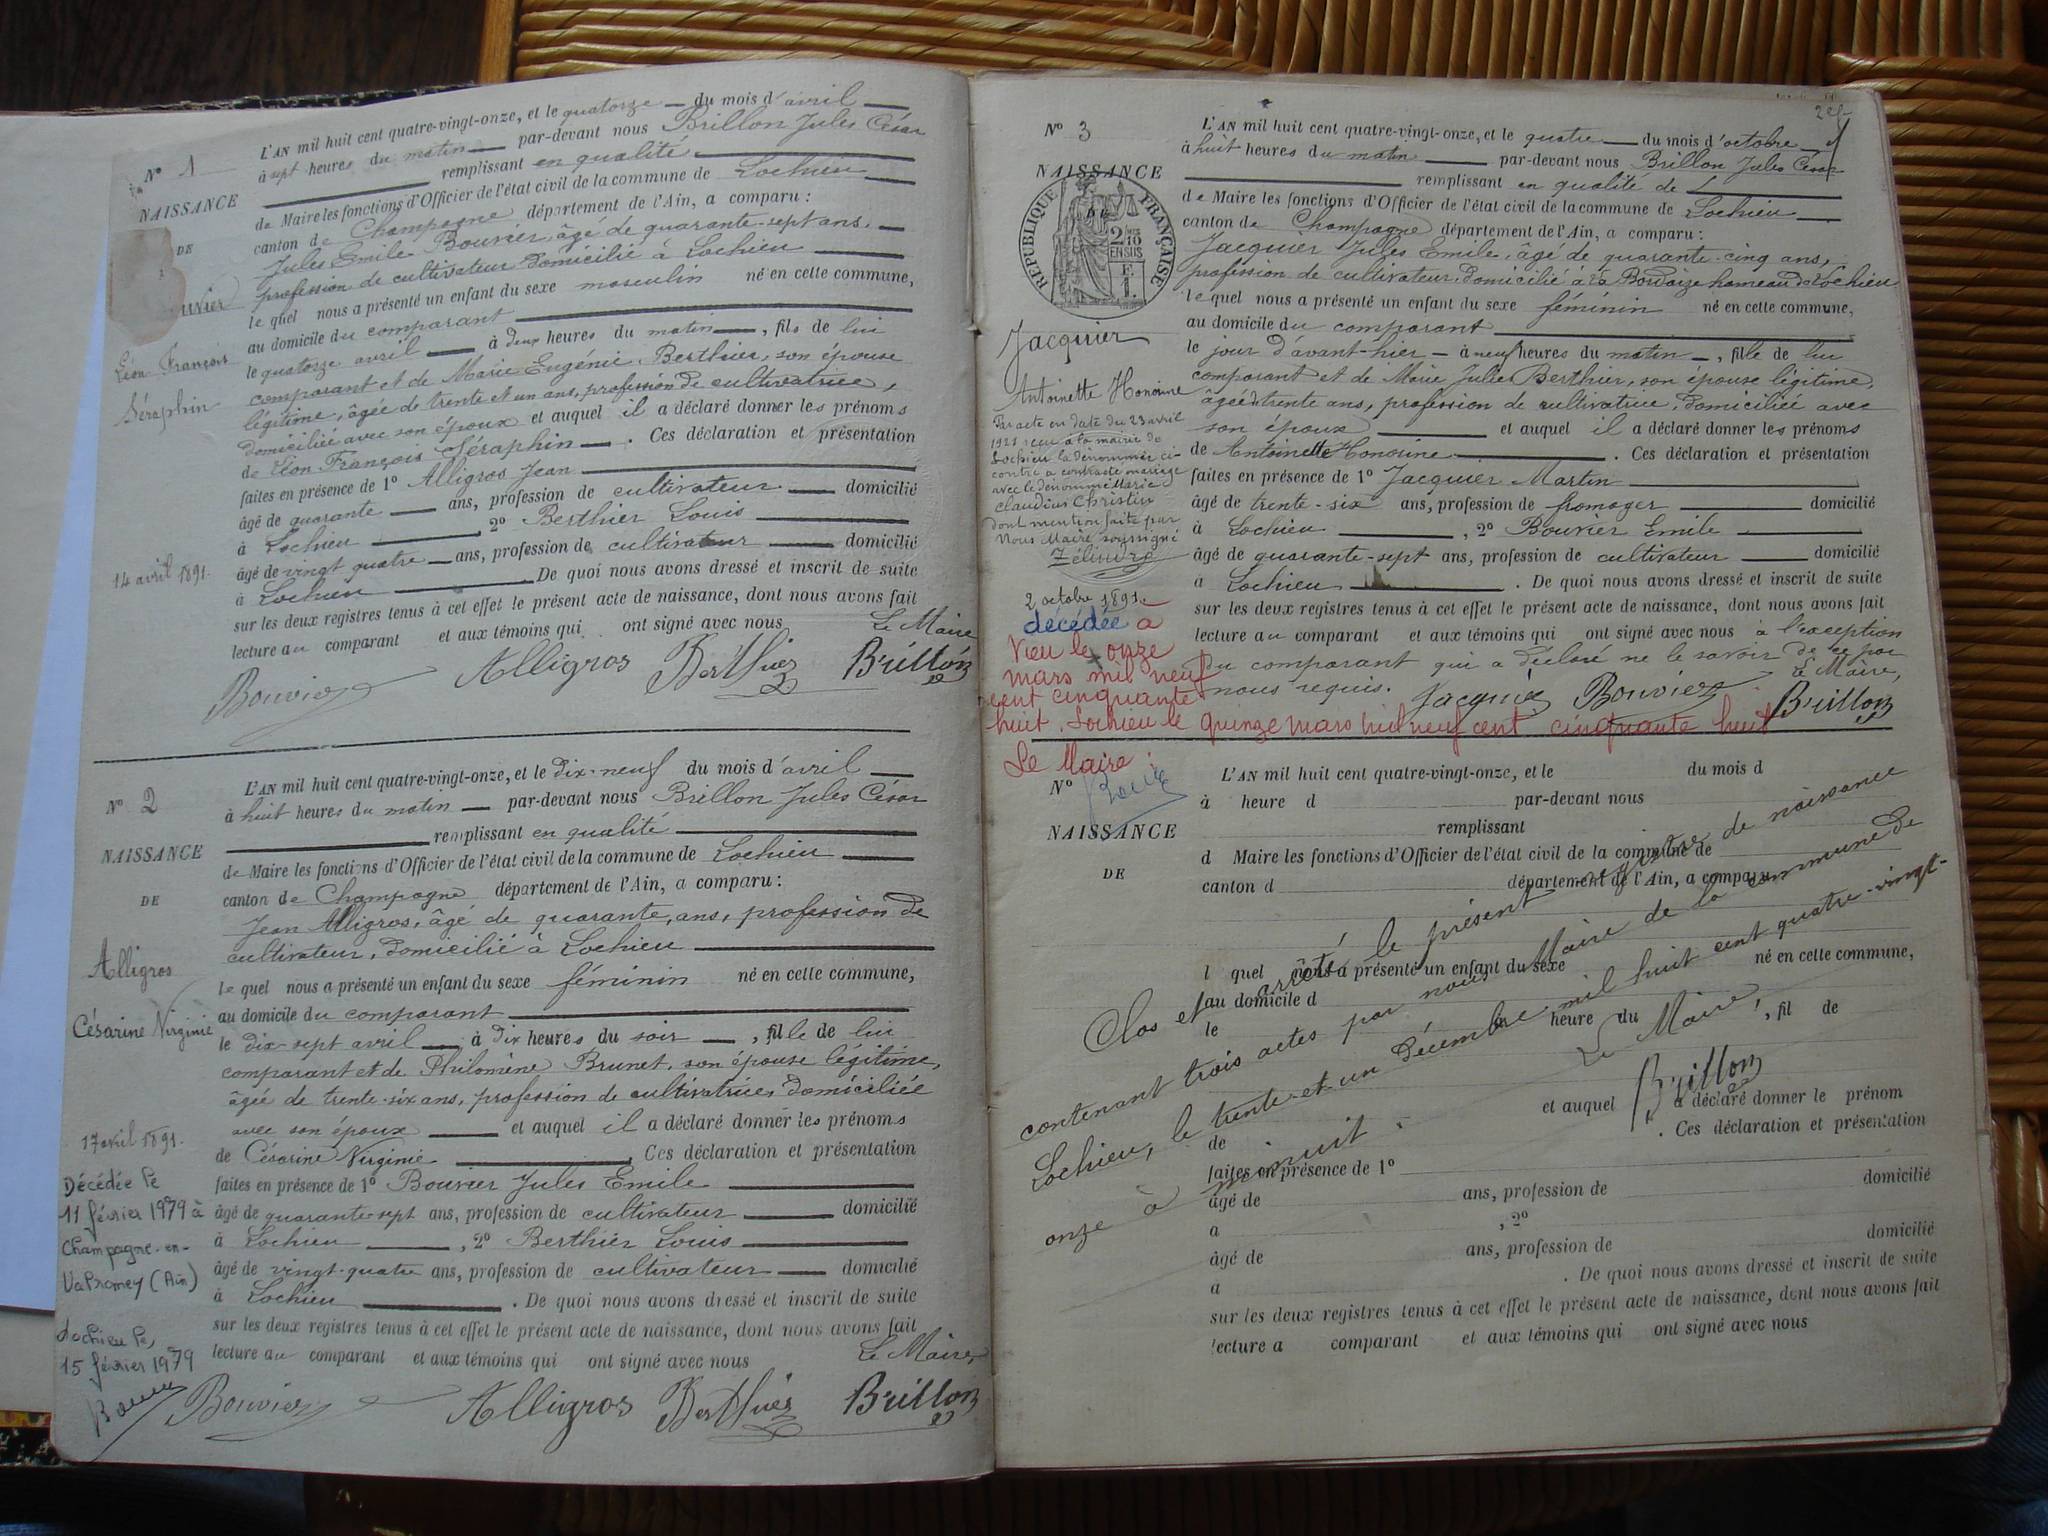 N° 1
NAISSANCE
DE
Léon François
Séraphin
14 avril 1891.
L'AN mil huit cent quatre-vingt-onze, et le quatorze du mois d'avril
à sept heures du matin par-devant nous Brillon Jules César
remplissant en qualité
de Maire les fonctions d'Officier de l'état civil de la commune de Lochieu
canton de Champagne département de l'Ain, a comparu :
Jules Emile Bouvier, âgé de quarante-sept ans,
profession de cultivateur domicilié à Lochieu
lequel nous a présenté un enfant du sexe masculin né en cette commune,
au domicile du comparant
le quatorze avril à deux heures du matin, fils de lui
comparant et de Marie Eugénie Berthier, son épouse
légitime, âgée de trente et un ans, profession de cultivatrice,
domiciliée avec son époux et auquel il a déclaré donner les prénoms
de Léon François Séraphin. Ces déclaration et présentation
faites en présence de 1° Alligros Jean
âgé de quarante ans, profession de cultivateur domicilié
à Lochieu, 2° Berthier Louis
âgé de vingt quatre ans, profession de cultivateur domicilié
à Lochieu. De quoi nous avons dressé et inscrit de suite
sur les deux registres tenus à cet effet le présent acte de naissance, dont nous avons fait
lecture au comparant et aux témoins qui ont signé avec nous
Le Maire
Bouvier Alligros Berthier Brillon
N° 2
NAISSANCE
DE
Alligros
Césarine Virginie
17 avril 1891.
Décédée le
11 février 1979 à
Champagne-en-
Valromey (Ain)
Lochieu le,
15 février 1979
L'AN mil huit cent quatre-vingt-onze, et le dix-neuf du mois d'avril
à huit heures du matin par-devant nous Brillon Jules César
remplissant en qualité
de Maire les fonctions d'Officier de l'état civil de la commune de Lochieu
canton de Champagne département de l'Ain, a comparu :
Jean Alligros, âgé de quarante ans, profession de
cultivateur, domicilié à Lochieu
lequel nous a présenté un enfant du sexe féminin né en cette commune,
au domicile du comparant
le dix-sept avril à dix heures du soir, fille de lui
comparant et de Philomène Brunet, son épouse légitime,
âgée de trente-six ans, profession de cultivatrice, domiciliée
avec son époux et auquel il a déclaré donner les prénoms
de Césarine Virginie. Ces déclaration et présentation
faites en présence de 1° Bouvier Jules Emile
âgé de quarante-sept ans, profession de cultivateur domicilié
à Lochieu, 2° Berthier Louis
âgé de vingt-quatre ans, profession de cultivateur domicilié
à Lochieu. De quoi nous avons dressé et inscrit de suite
sur les deux registres tenus à cet effet le présent acte de naissance, dont nous avons fait
lecture au comparant et aux témoins qui ont signé avec nous
Le Maire,
Bouvier Alligros Berthier Brillon
N° 3
NAISSANCE
DE
RÉPUBLIQUE FRANÇAISE
2/10 EN SUS
Jacquier
Antoinette Honorine
Par acte en date du 23 avril
1921 reçu à la mairie de
Lochieu la dénommée ci-
contre a contracté mariage
avec le dénommé Marie
Claudius Christin
dont mention faite par
Nous Maire soussigné
2 octobre 1891.
décédée a
Vieu le onze
mars mil neuf
cent cinquante
huit. Lochieu le quinze mars mil neuf cent cinquante huit
Le Maire :
L'AN mil huit cent quatre-vingt-onze, et le quatre du mois d'octobre
à huit heures du matin par-devant nous Brillon Jules César
remplissant en qualité de
de Maire les fonctions d'Officier de l'état civil de la commune de Lochieu
canton de Champagne département de l'Ain, a comparu :
Jacquier Jules Emile, âgé de quarante-cinq ans,
profession de cultivateur, domicilié à la hameau de Lochieu
lequel nous a présenté un enfant du sexe féminin né en cette commune,
au domicile du comparant
le jour d'avant-hier à neuf heures du matin, fille de lui
comparant et de Marie Julie Berthier, son épouse légitime,
âgée de trente ans, profession de cultivatrice, domiciliée avec
son époux et auquel il a déclaré donner les prénoms
de Antoinette Honorine. Ces déclaration et présentation
faites en présence de 1° Jacquier Martin
âgé de trente-six ans, profession de fromager domicilié
à Lochieu, 2° Bouvier Emile
âgé de quarante-sept ans, profession de cultivateur domicilié
à Lochieu. De quoi nous avons dressé et inscrit de suite
sur les deux registres tenus à cet effet le présent acte de naissance, dont nous avons fait
lecture au comparant et aux témoins qui ont signé avec nous à l'exception
du comparant qui a déclaré ne le savoir de ce par
nous requis. Le Maire,
Jacquier Bouvier Brillon
N°
NAISSANCE
DE
L'AN mil huit cent quatre-vingt-onze, et le du mois d
à heure d par-devant nous
remplissant
d Maire les fonctions d'Officier de l'état civil de la commune de
canton d département de l'Ain, a comparu
l quel nous a présenté un enfant du sexe né en cette commune,
au domicile d
le à heure du , fil de
et auquel a déclaré donner le prénom
de . Ces déclaration et présentation
faites en présence de 1°
âgé de ans, profession de domicilié
à , 2°
âgé de ans, profession de domicilié
à . De quoi nous avons dressé et inscrit de suite
sur les deux registres tenus à cet effet le présent acte de naissance, dont nous avons fait
lecture a comparant et aux témoins qui ont signé avec nous
Clos et arrêté le présent registre de naissance
contenant trois actes par nous Maire de la commune de
Lochieu, le trente-et-un décembre mil huit cent quatre-vingt-
onze à minuit.
Le Maire,
Brillon